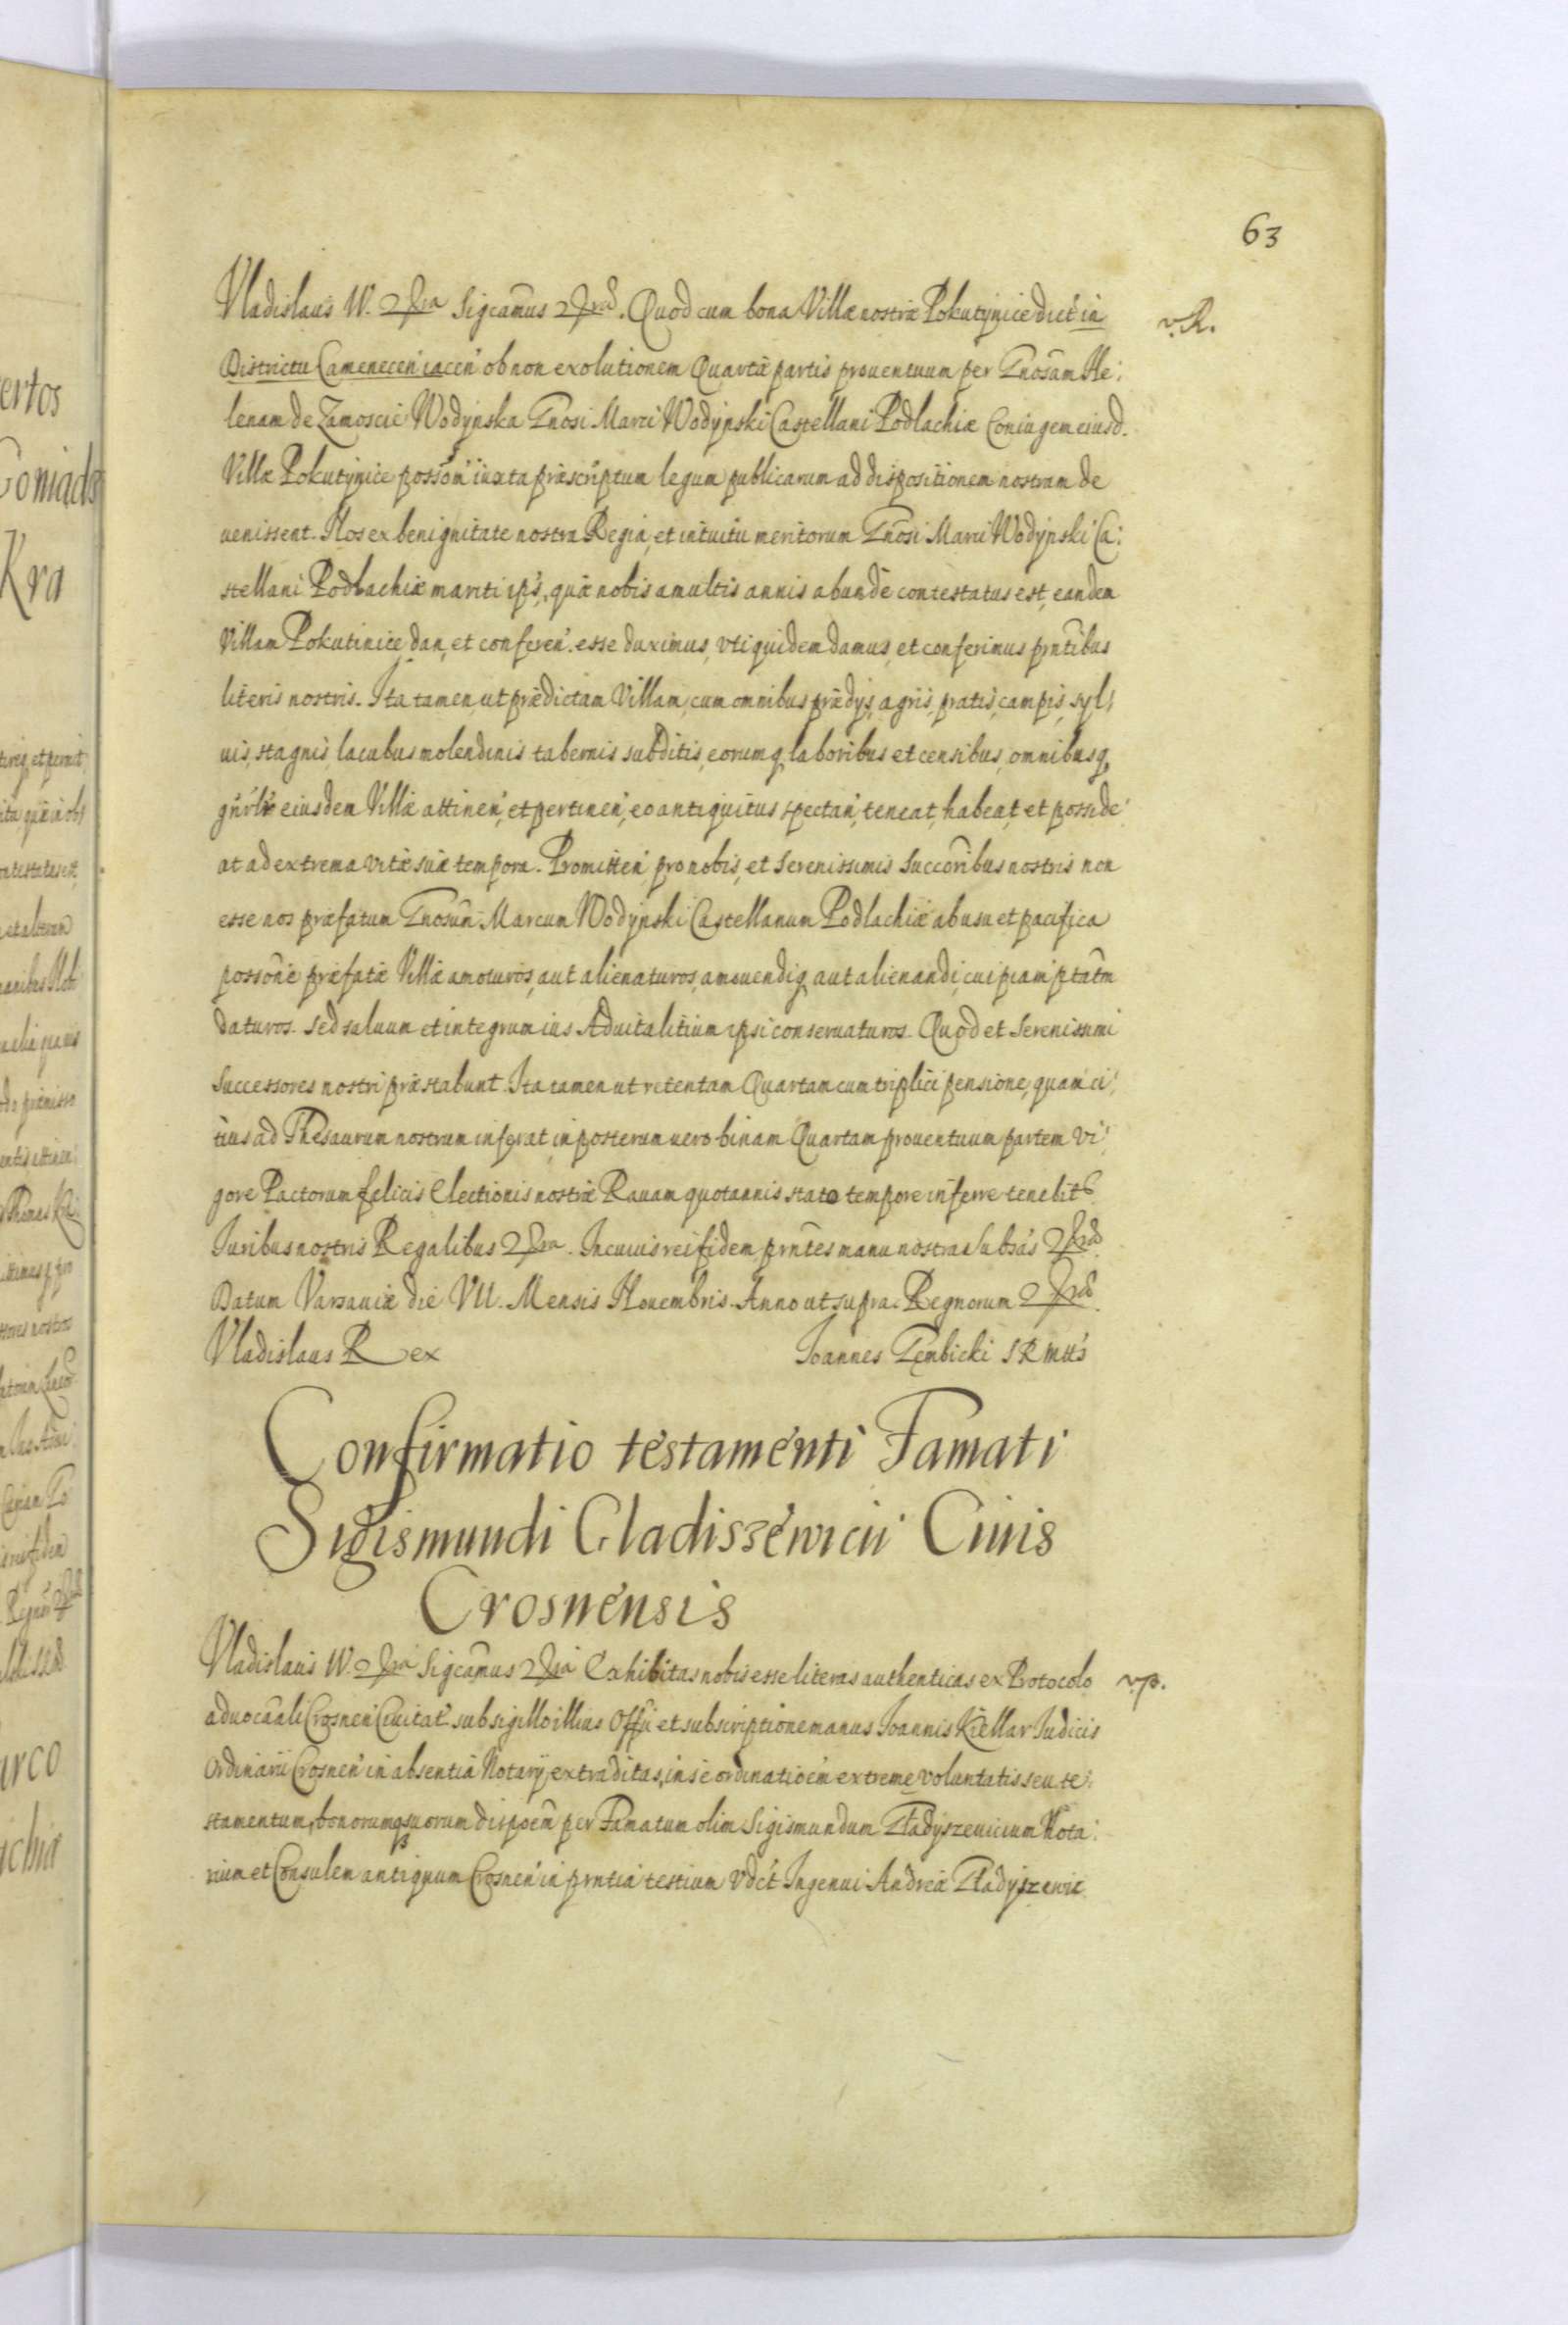 63
Vladislaus IV. &ra Sigcamus &rad. Quod cum bona Villæ nostræ Pokutynice dict in
v. R.
Districtu Camenecen' iacen' ob non exolutionem Quartæ partis prouentuum per Gnosam He:
lenam de Zamoscie Wodynska Gnosi Marci Wodynski Castellani Podlachiæ Coniugem eiusd.
Villæ Pokutynice posson' iuxta præscriptum legum publicarum ad dispositionem nostram de
uenissent. Nos ex benignitate nostra Regia, et intuitu meritorum Gnosi Marci Wodynski Ca:
stellani Podlachiæ mariti ips, quæ nobis a multis annis abundè contestatus est, eandem
Villam Pokutinice dan, et conferen'. esse duximus, vti quidem damus, et conferimus prntibus
literis nostris. Ita tamen, ut prædictam Villam, cum omnibus prædys, agris, pratis, campis, syl:
uis, stagnis, lacubus molendinis tabernis subditis, eorumq laboribus et censibus, omnibusq
gnrlr eiusdem Villæ attinen', et pertinen', eo antiquitus spectan', teneat, habeat, et posside:
at ad extrema vitæ suæ tempora. Promitten' pro nobis, et Serenissimis Succoribus nostris non
esse nos præfatum Gnosum Marcum Wodynski Castellanum Podlachiæ ab usu et pacifica
possone præfatæ Villæ amoturos, aut alienaturos, amouendiq aut alienandi, cuipiam ptatem
daturos. Sed saluum et integrum ius Aduitalitium ipsi conseruaturos. Quod et Serenissimi
Successores nostri præstabunt. Ita tamen ut retentam Quartam cum triplici pensione, quam ci:
tius ad Thesaurum nostrum inferat, in posterum uero binam Quartam prouentuum partem vi:
gore Pactorum felicis Electionis nostræ Rauam quotannis stato tempore inferre tenebit
Iuribus nostris Regalibus &ra. In cuius rei fidem prntes manu nostra Subsas &rad
Datum Varsauiæ die VII. Mensis Nouembris. Anno ut supra. Regnorum &rad.
Vladislaus Rex
Ioannes Gembicki S R Mttis
Confirmatio testamenti Famati
Sigismundi Gladiszewicii Ciuis
Crosnensis
Vladislaus IV. &ra Sigcamus &ra Exhibitas nobis esse literas authenticas ex Protocolo
v. p.
aduocaali Crosnen Ciuitat' sub sigillo illius Offii et subscriptione manus Ioannis Kiellar Iudicis
Ordinarii Crosnen' in absentia Notary extraditas, in se ordinatioem extreme voluntatis seu te:
stamentum, bonorumq suorum dispoem per Famatum olim Sigismundum Gładyszeuicium Nota:
rium et Consulem antiquum Crosnen' in prntia testium vdct Ingenui Andreæ Gładyszewic